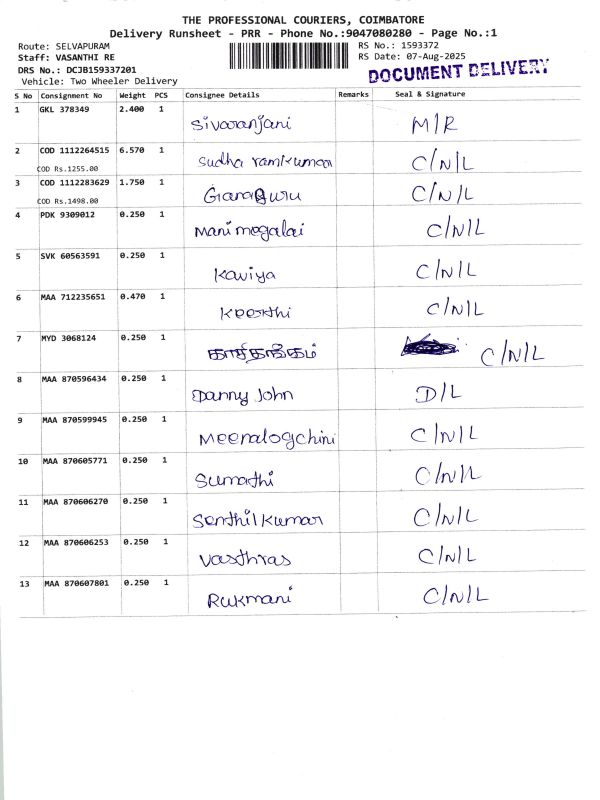 THE PROFESSIONAL COURIERS, COIMBATORE
Delivery Runsheet - PRR - Phone No.:9047080280 - Page No.:1
Route: SELVAPURAM
RS No.: 1593372
Staff: VASANTHI RE
RS Date: 07-Aug-2025
DRS No.: DCJB159337201
DOCUMENT DELIVERY
Vehicle: Two Wheeler Delivery
S No Consignment No Weight PCS Consignee Details Remarks Seal & Signature
1 GKL 378349 2.400 1 Sivaranjani M/R
2 COD 1112264515 6.570 1 Sudha ramkumar C/N/L
COD Rs.1255.00
3 COD 1112283629 1.750 1 Gianaguru C/N/L
COD Rs.1498.00
4 PDK 9309012 0.250 1 Manimegalai C/N/L
5 SVK 60563591 0.250 1 Kaviya C/N/L
6 MAA 712235651 0.470 1 Keerthi C/N/L
7 MYD 3068124 0.250 1 C/N/L
8 MAA 870596434 0.250 1 Danny John D/L
9 MAA 870599945 0.250 1 Meenalogchini C/N/L
10 MAA 870605771 0.250 1 Sumathi C/N/L
11 MAA 870606270 0.250 1 Senthilkumar C/N/L
12 MAA 870606253 0.250 1 Vasthras C/N/L
13 MAA 870607801 0.250 1 Rukmani C/N/L